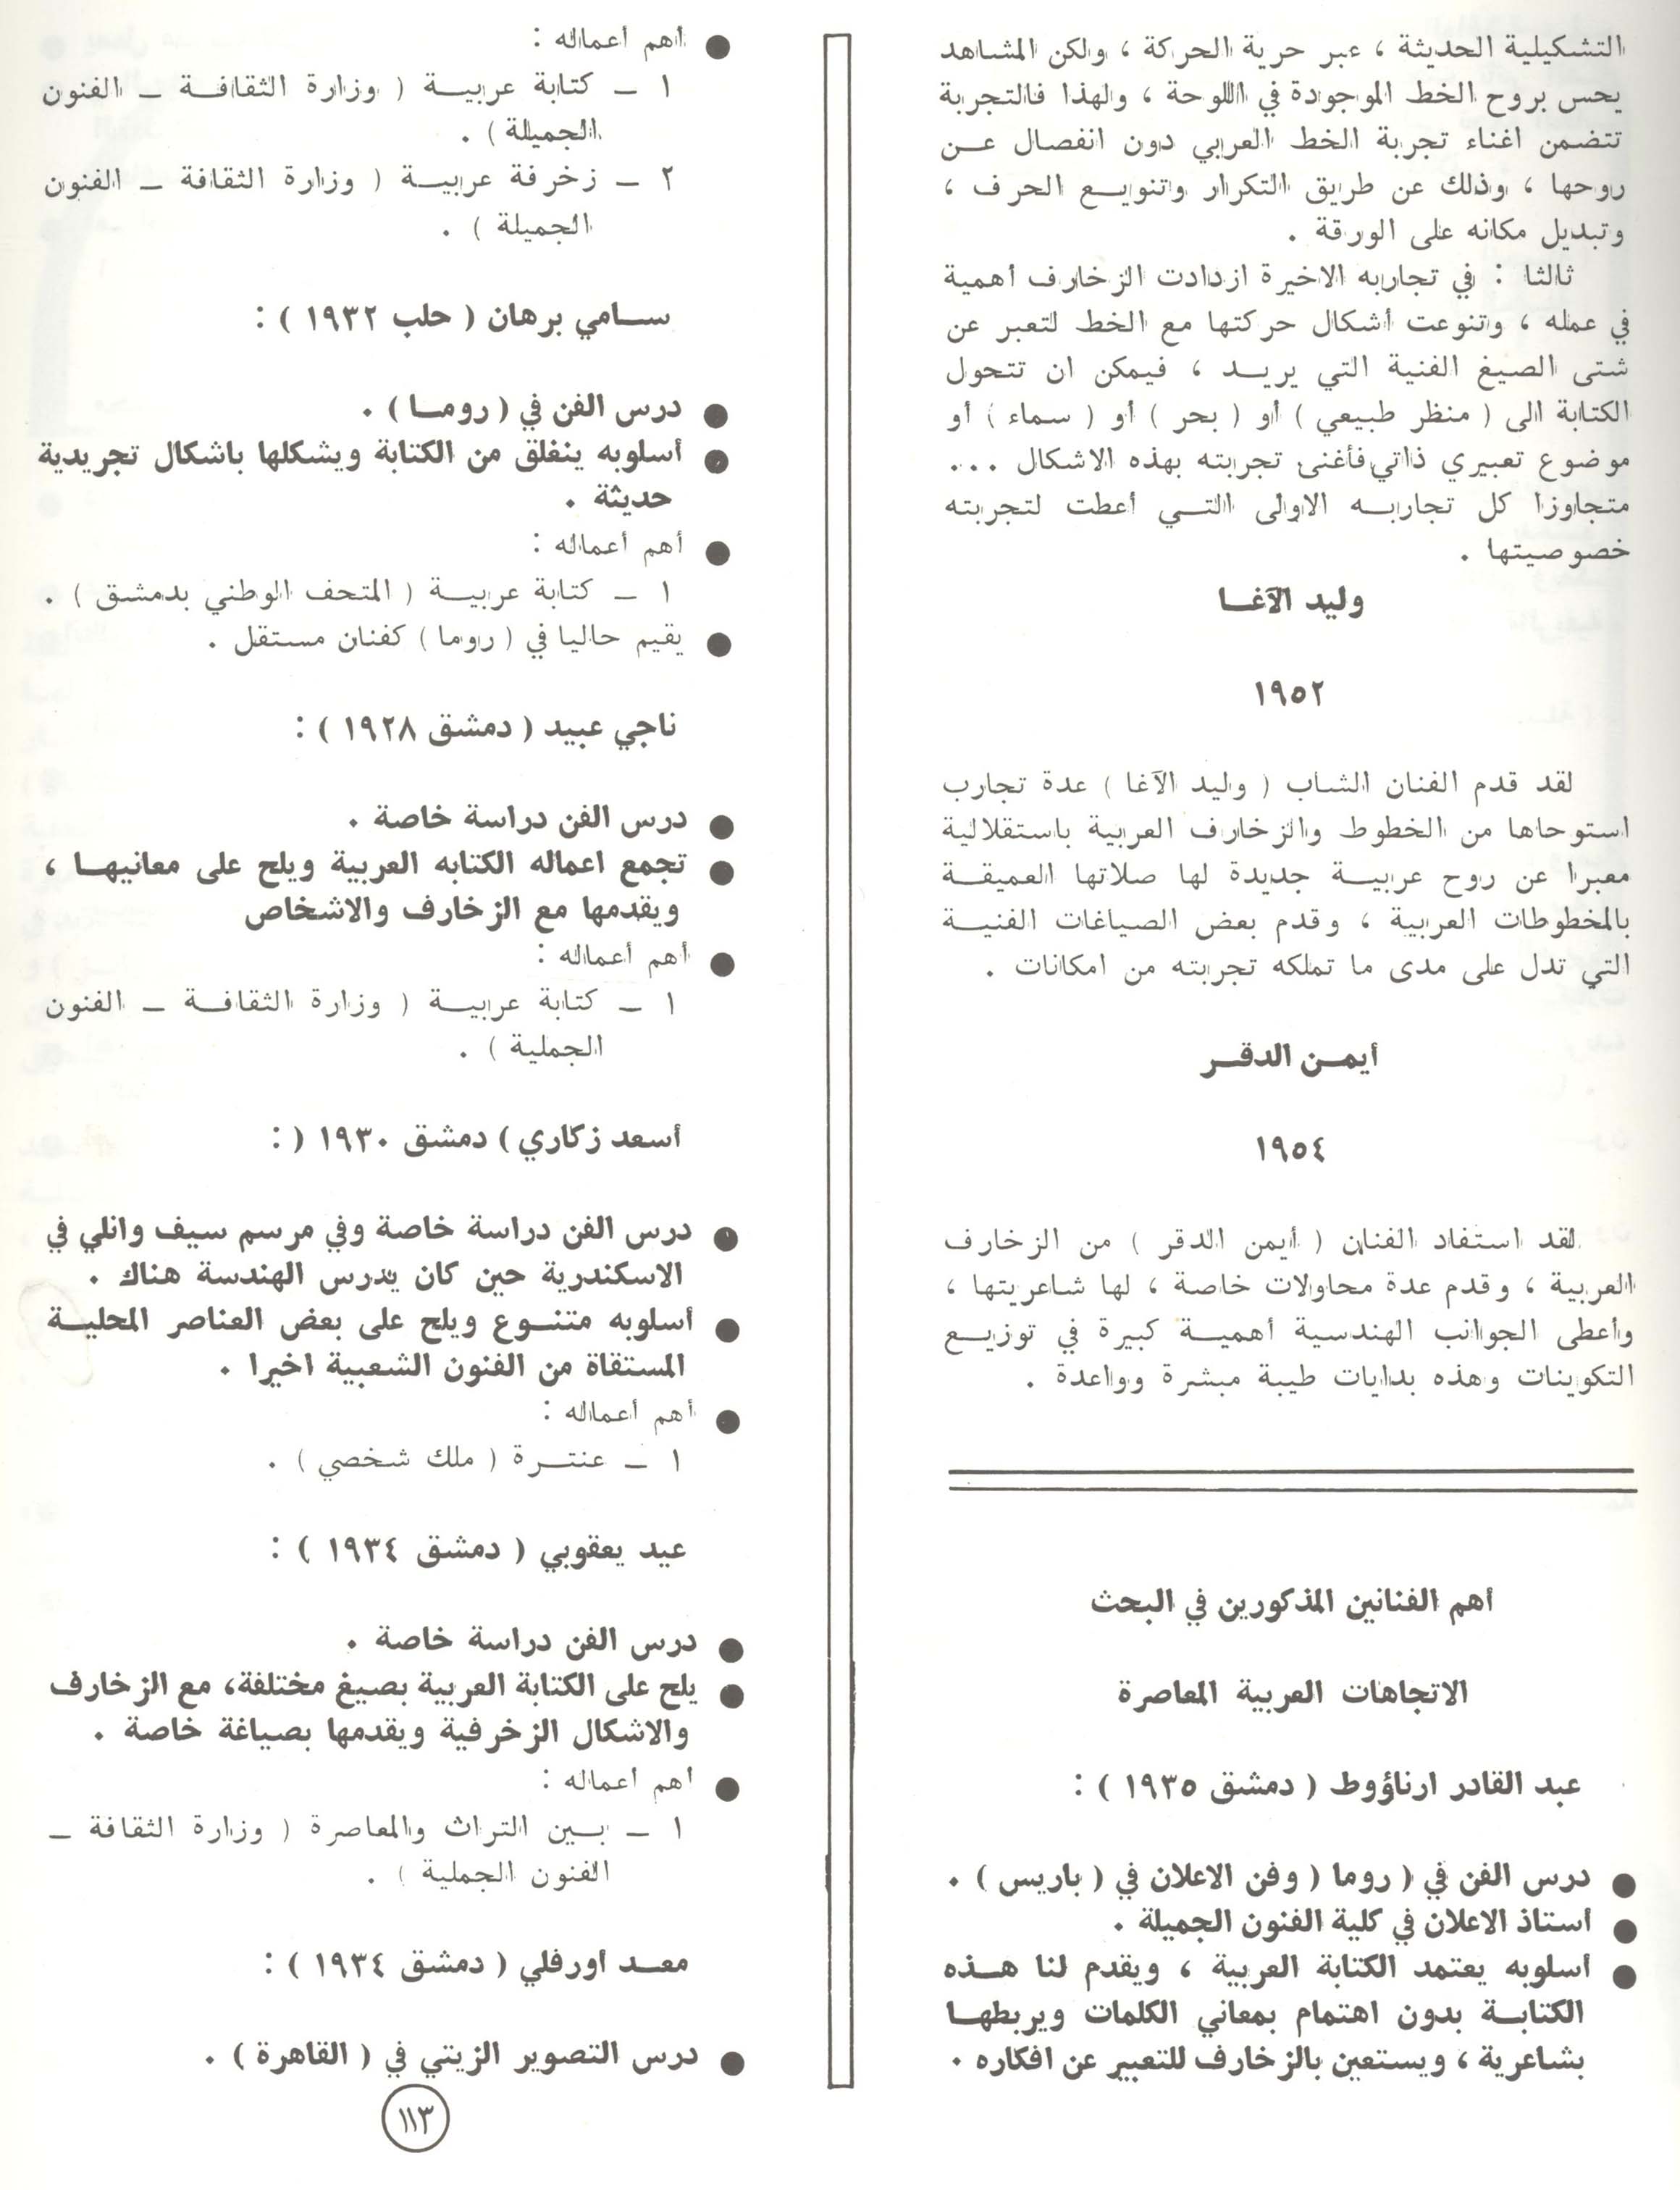 التشكيلية الحديثة ، عبر حرية الحركة ، ولكن المشاهد
يحس بروح الخط الموجودة في اللوحة ، ولهذا فالتجربة
تتضمن اغناء تجربة الخط العربي دون انفصال عـن
روحها ، وذلك عن طريق التكرار وتنويـع الحرف ،
وتبديل مكانه على الورقة .
ثالثا : في تجاربه الاخيرة ازدادت الزخارف أهمية
في عمله ، وتنوعت أشكال حركتها مع الخط لتعبر عن
شتى الصيغ الفنية التي يريـد ، فيمكن ان تتحول
الكتابة الى ( منظر طبيعي ) أو ( بحر ) أو ( سماء ) أو
موضوع تعبيري ذاتي فأغنى تجربته بهذه الاشكال ...
متجاوزا كل تجاربـه الاولى التـي أعطت لتجربته
خصوصيتها .
وليد الآغـا
١٩٥٢
لقد قدم الفنان الشاب ( وليد الآغا ) عدة تجارب
استوحاها من الخطوط والزخارف العربية باستقلالية
معبرا عن روح عربيـة جديدة لها صلاتها العميقـة
بالمخطوطات العربية ، وقدم بعض الصياغات الفنيـة
التي تدل على مدى ما تملكه تجربته من امكانات .
أيمـن الدقـر
١٩٥٤
لقد استفاد الفنان ( أيمن الدقر ) من الزخارف
العربية ، وقدم عدة محاولات خاصة ، لها شاعريتها ،
وأعطى الجوانب الهندسية أهميـة كبيرة في توزيـع
التكوينات وهذه بدايات طيبة مبشرة وواعدة .
أهم الفنانين المذكورين في البحث
الاتجاهات العربية المعاصرة
عبد القادر ارناؤوط ( دمشق ١٩٣٥ ) :
● درس الفن في ( روما ( وفن الاعلان في ( باريس ) .
● أستاذ الاعلان في كلية الفنون الجميلة .
● أسلوبه يعتمد الكتابة العربية ، ويقدم لنا هـذه
الكتابـة بدون اهتمام بمعاني الكلمات ويربطهـا
بشاعرية ، ويستعين بالزخارف للتعبير عن افكاره .
● أهم أعماله :
١ ـ كتابة عربيـة ( وزارة الثقافـة ـ الفنون
الجميلة ) .
٢ ـ زخرفة عربيـة ( وزارة الثقافة ـ الفنون
الجميلة ) .
سـامي برهان ( حلب ١٩٣٢ ) :
● درس الفن في ( رومـا ) .
● أسلوبه ينفلق من الكتابة ويشكلها باشكال تجريدية
حديثة .
● أهم أعماله :
١ ـ كتابة عربيـة ( المتحف الوطني بدمشق ) .
● يقيم حاليا في ( روما ) كفنان مستقل .
ناجي عبيد ( دمشق ١٩٢٨ ) :
● درس الفن دراسة خاصة .
● تجمع اعماله الكتابه العربية ويلح على معانيهـا ،
ويقدمها مع الزخارف والاشخاص
● أهم أعماله :
١ ـ كتابة عربيـة ( وزارة الثقافـة ـ الفنون
الجملية ) .
أسعد زكاري ) دمشق ١٩٣٠ ( :
● درس الفن دراسة خاصة وفي مرسم سيف وانلي في
الاسكندرية حين كان يدرس الهندسة هناك .
● أسلوبه متنـوع ويلح على بعض العناصر المحليـة
المستقاة من الفنون الشعبية اخيرا .
● أهم أعماله :
١ ـ عنتـرة ( ملك شخصي ) .
عيد يعقوبي ( دمشق ١٩٣٤ ) :
● درس الفن دراسة خاصة .
● يلح على الكتابة العربية بصيغ مختلفة، مع الزخارف
والاشكال الزخرفية ويقدمها بصياغة خاصة .
● أهم أعماله :
١ ـ بـين التراث والمعاصرة ( وزارة الثقافة ـ
الفنون الجملية ) .
معـد أورفلي ( دمشق ١٩٣٤ ) :
● درس التصوير الزيتي في ( القاهرة ) .
١١٣